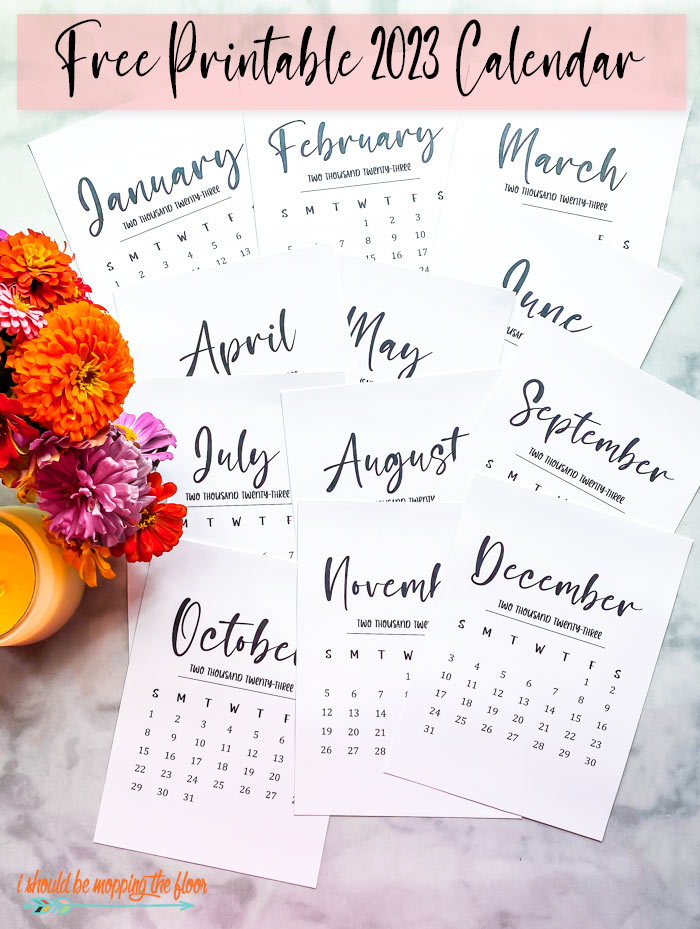 Free Printable 2023 Calendar
January
TWO THOUSAND TWENTY-THREE
S M T W T F
1 2 3 4 5 6
10 11 12 13
February
TWO THOUSAND TWENTY-THREE
S M T W T F S
1 2 3
8 9 10
15 16 17
24
March
TWO THOUSAND TWENTY-THREE
F S
April
May
June
July
TWO THOUSAND TWENTY-THREE
M T W T F
6 7
August
TWO THOUSAND TWENTY
September
TWO THOUSAND TWENTY-THREE
S M
October
TWO THOUSAND TWENTY-THREE
S M T W T F
1 2 3 4 5 6
8 9 10 11 12 13
15 16 17 18 19 20
22 23 24 25 26 27
29 30 31
Novemb
TWO THOUSAND TWEN
S M T W
1
5 6 7
12 13 14
19 20 21
26 27 28
December
TWO THOUSAND TWENTY-THREE
S M T W T F S
1 2
3 4 5 6 7 8 9
10 11 12 13 14 15 16
17 18 19 20 21 22 23
24 25 26 27 28 29 30
31
i should be mopping the floor